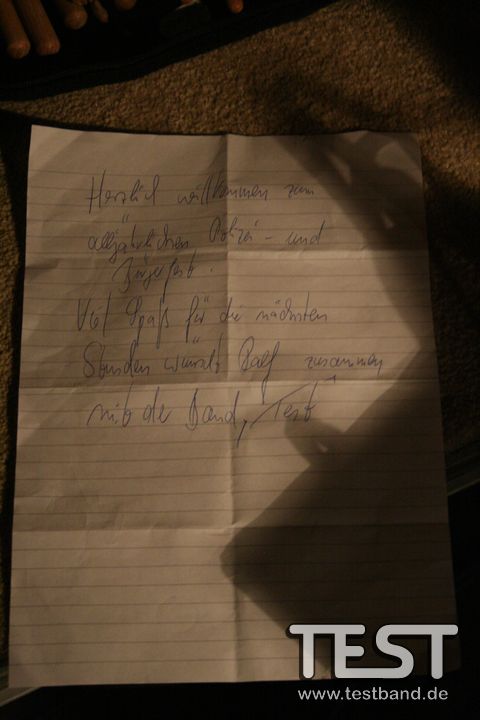 Herzlich willkommen zum
alljährlichen Polizei- und
Bürgerfest.
Viel Spaß für die nächsten
Stunden wünscht Ralf zusammen
mit der Band, Test
TEST
www.testband.de